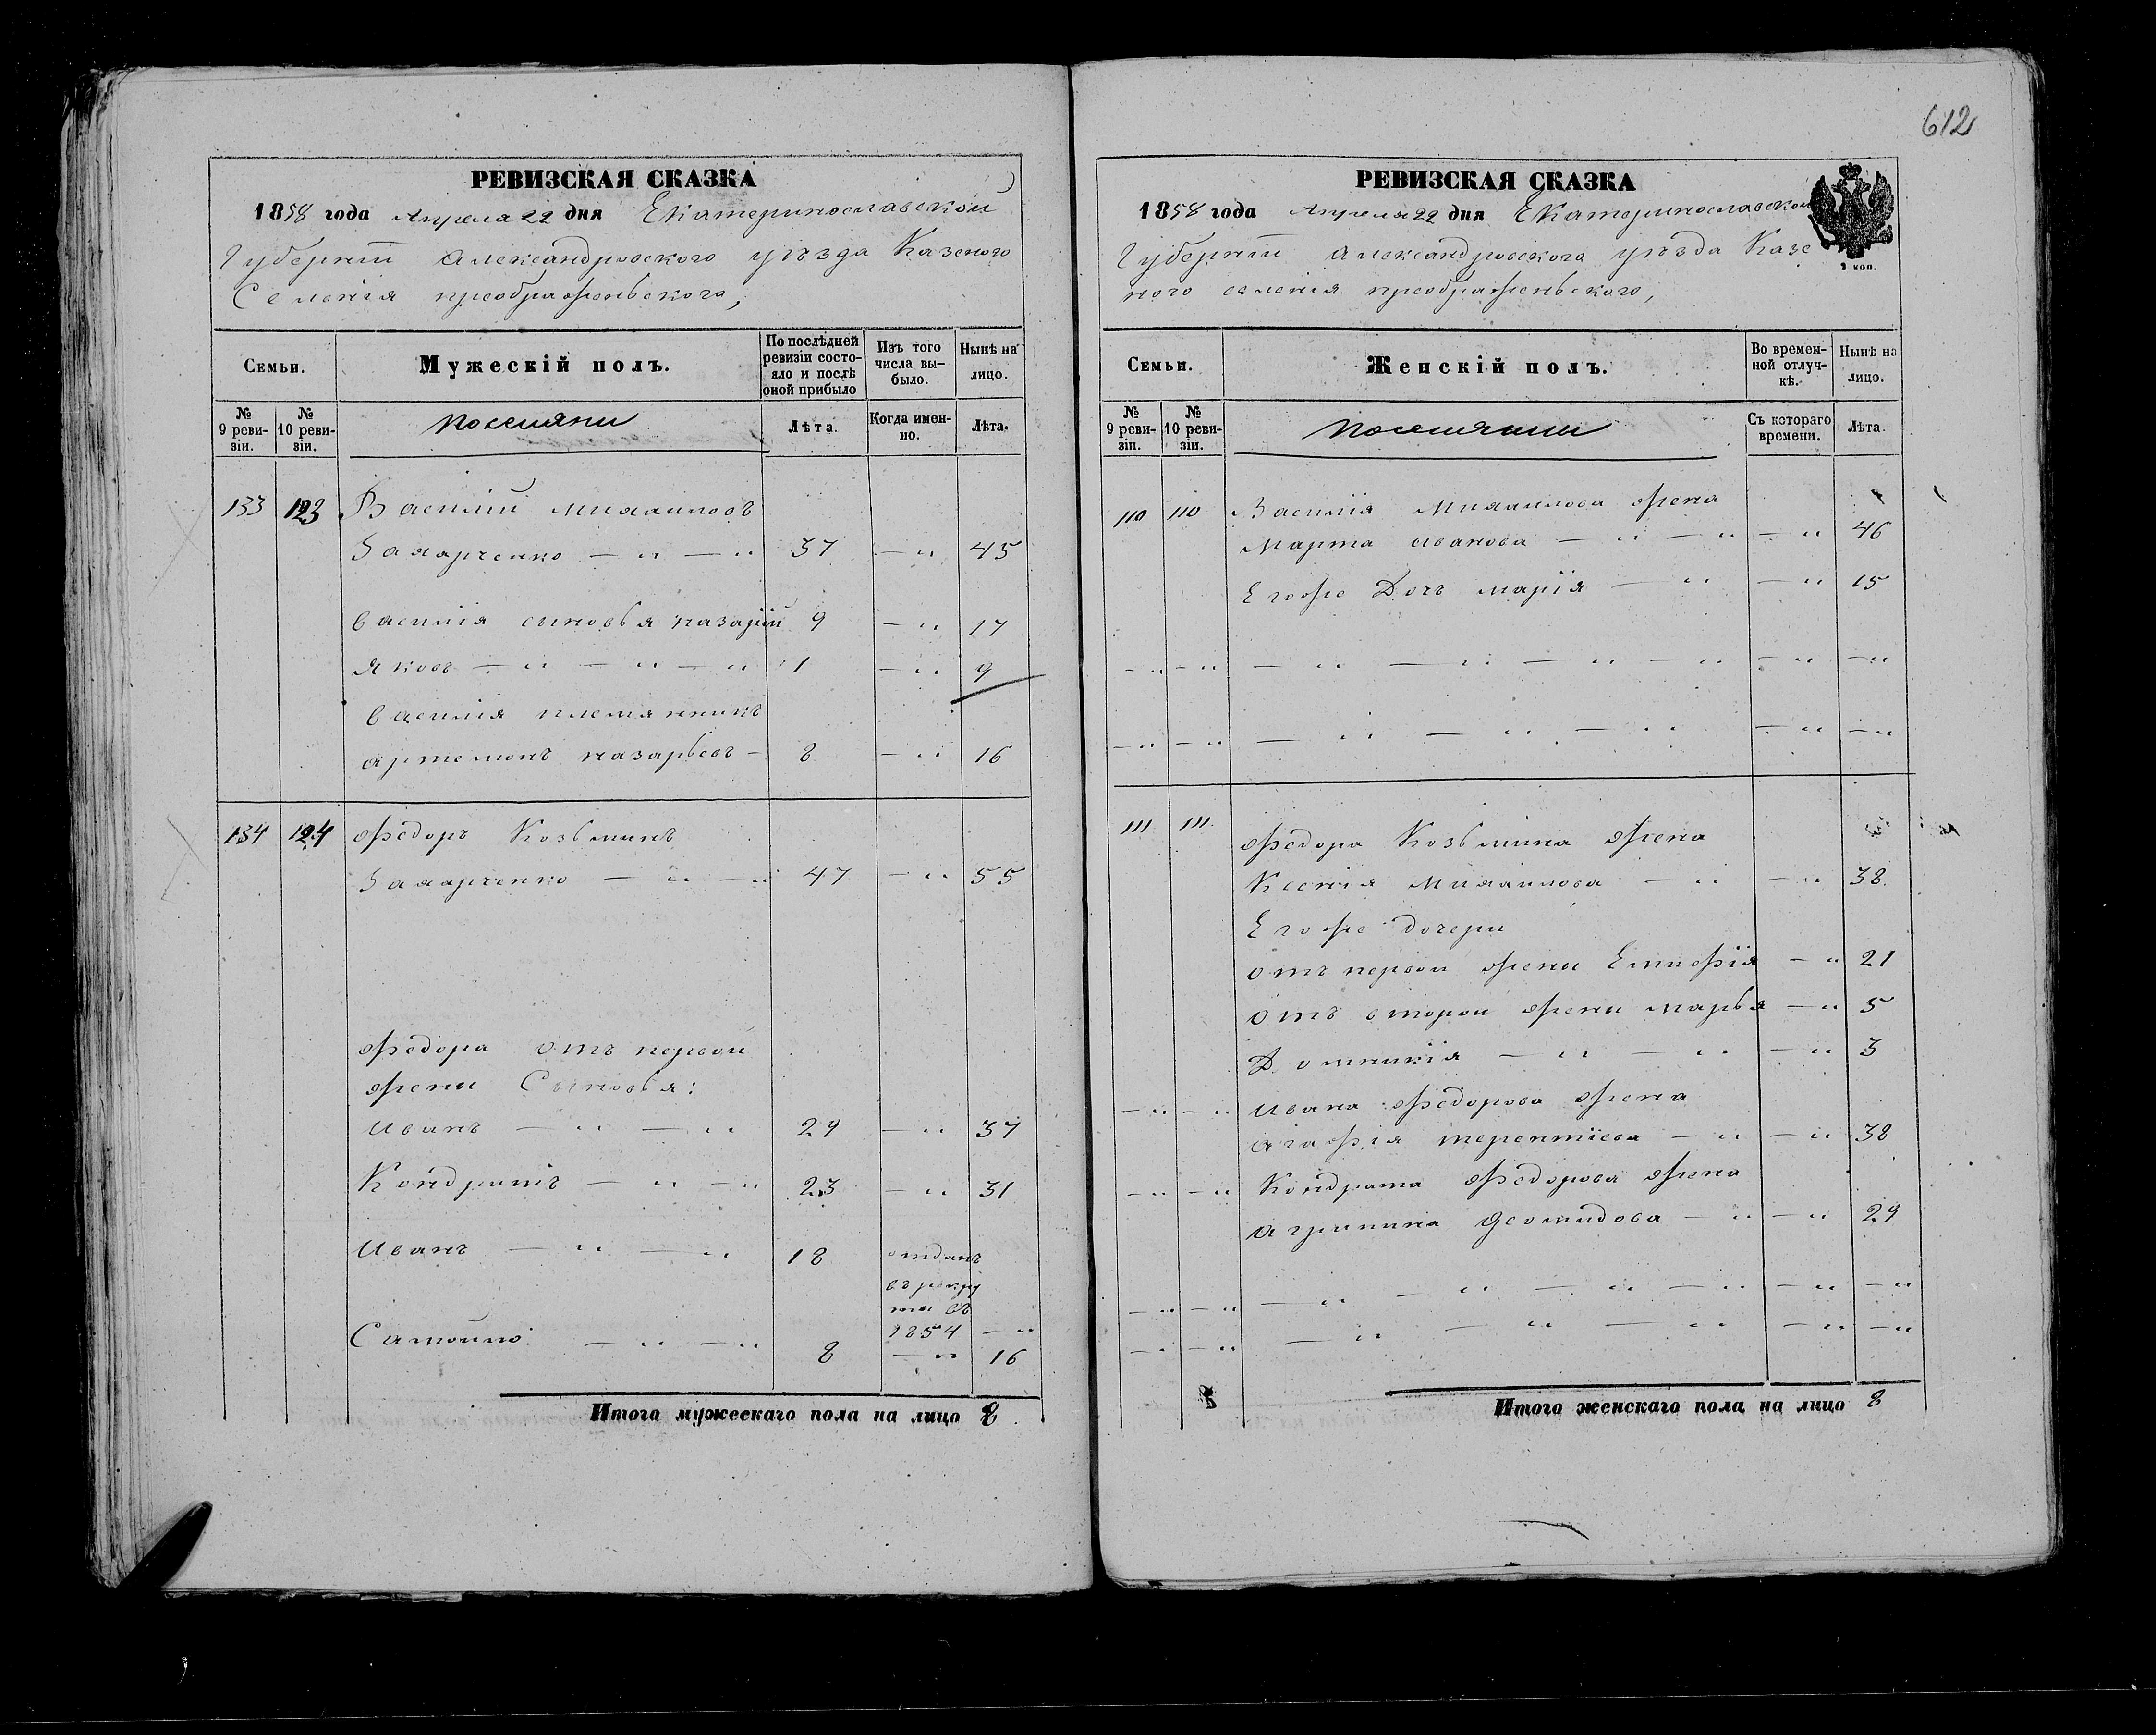 612
РЕВИЗСКАЯ СКАЗКА
1858 года Апреля 22 дня Екатеринославской
Губерніи Александровского уъзда Казеного
Селенія преображеньского,
Семьи.
Мужескій полъ.
По послѣдней ревизіи состояло и послѣ оной прибыло
Изъ того числа выбыло.
Нынѣ на лицо.
№ 9 ревизіи.
№ 10 ревизіи.
поселяни
Лѣта.
Когда именно.
Лѣта.
133 123 Василій михаиловъ
Захарченко — „ — „ 37 — „ 45
василія сыновья назарій 9 — „ 17
яковъ — „ — „ — „ 1 — „ 9
василія племянникъ
артемонъ назарьевъ — 8 — „ 16
134 124 Федоръ Козьминъ
Захарченко — „ — „ 47 — „ 55
Федора отъ первой
жени Сыновья:
иванъ — „ — „ 29 — „ 37
Кондратъ — „ — „ 23 — „ 31
иванъ — „ — „ 18 отданъ
въ рекру
ты въ
1854 — „
Самойло — „ — „ 8 — „ 16
Итого мужескаго пола на лицо 8
РЕВИЗСКАЯ СКАЗКА
1858 года Апреля 22 дня Екатеринославской
Губерніи александровского уъзда Казе
ного селенія преображеньского,
2 коп.
Семьи.
Женскій полъ.
Во временной отлучкѣ.
Нынѣ на лицо.
№ 9 ревизіи.
№ 10 ревизіи.
поселянки
Съ котораго времени.
Лѣта.
110 110 Василія Михаилова жена
марта иванова — „ — „ — „ 46
Егоже Дочь марія — „ — „ 15
— „ — „ — „ — „ — „ — „ — „ — „
— „ — „ — „ — „ — „ — „ — „
111 111. Федора Козьмина жена
Ксенія Михаилова — „ — „ 38
Егоже дочери
отъ первои жены Епифія — „ 21
отъ второи жени марья — „ 5
Домникія — „ — „ — „ 3
— „ — „ ивана Федорова жена
агафія терентіева — „ — „ 38
— „ — „ Кондрата Федорова жена
агрипина Деомидова — „ — „ 29
— „ — „ — „ — „ — „ — „ — „ — „
— „ — „ — „ — „ — „ — „ — „
Итого женскаго пола на лицо 8